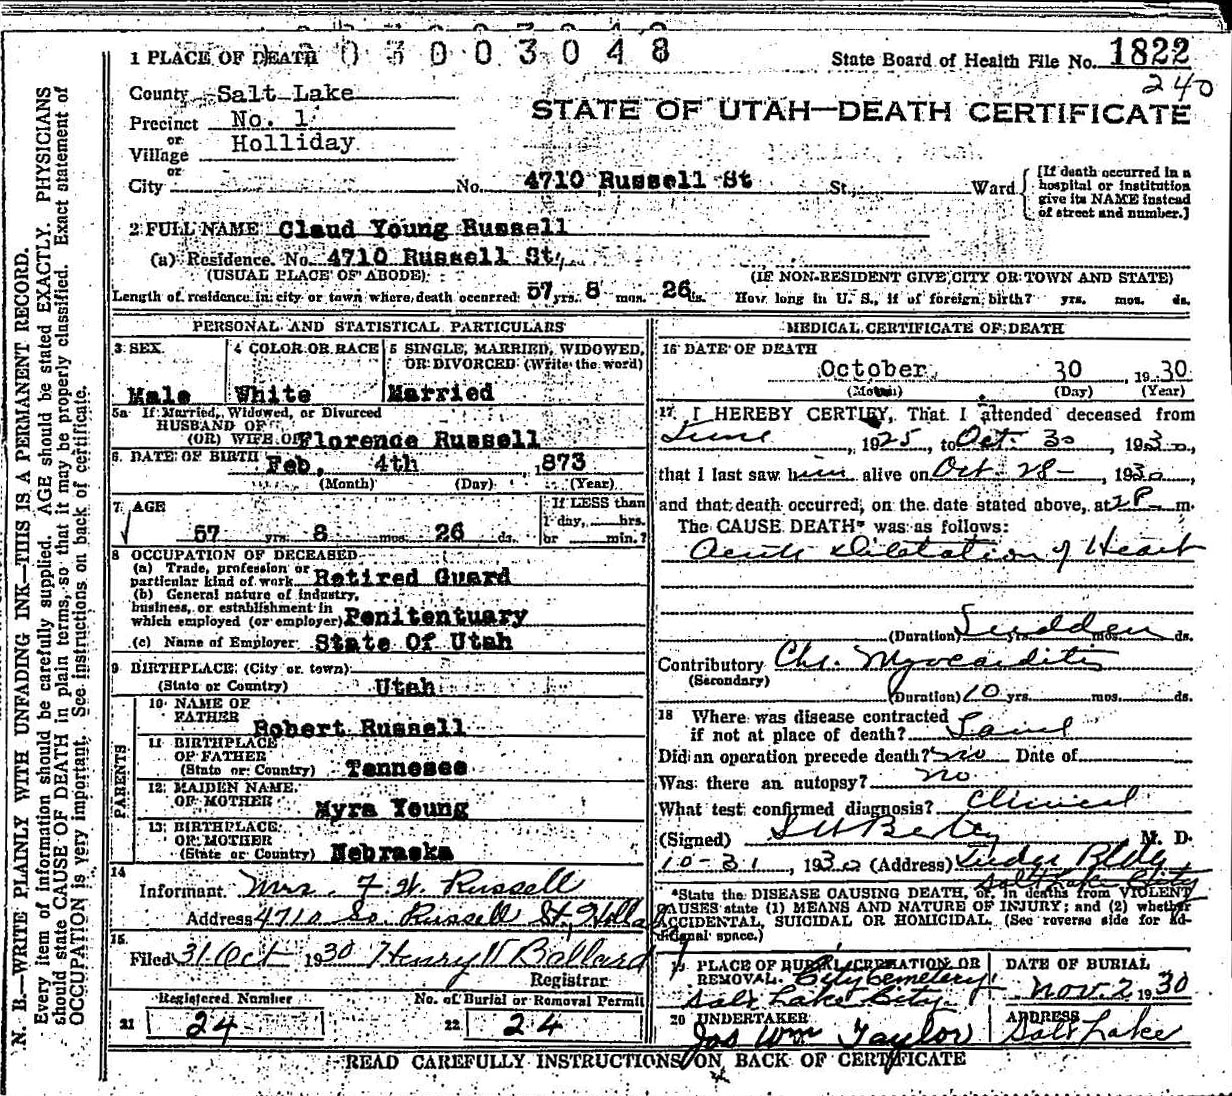 3003048
1 PLACE OF DEATH
State Board of Health File No. 1822
240
County Salt Lake
STATE OF UTAH—DEATH CERTIFICATE
Precinct No. 1
or
Village Holliday
or
City No. 4710 Russell St St., Ward
[If death occurred in a hospital or institution give its NAME instead of street and number.]
2 FULL NAME Claud Young Russell
(a) Residence. No. 4710 Russell St,
(USUAL PLACE OF ABODE) (IF NON-RESIDENT GIVE CITY OR TOWN AND STATE)
Length of residence in city or town where death occurred 57 yrs. 8 mos. 26 ds. How long in U. S., if of foreign birth? yrs. mos. ds.
PERSONAL AND STATISTICAL PARTICULARS
3 SEX Male
4 COLOR OR RACE White
5 SINGLE, MARRIED, WIDOWED, OR DIVORCED (Write the word) Married
5a If Married, Widowed, or Divurced
HUSBAND OF
(OR) WIFE OF Florence Russell
6 DATE OF BIRTH Feb, 4th , 1873
(Month) (Day) (Year)
7 AGE
57 yrs. 8 mos. 26 ds.
If LESS than
1 day, hrs.
or min.?
8 OCCUPATION OF DECEASED
(a) Trade, profession or
particular kind of work Retired Guard
(b) General nature of industry,
business, or establishment in
which employed (or employer) Penitentuary
(c) Name of Employer State Of Utah
9 BIRTHPLACE (City or town)
(State or Country) Utah
PARENTS
10 NAME OF
FATHER Robert Russell
11 BIRTHPLACE
OF FATHER
(State or Country) Tennesee
12 MAIDEN NAME
OF MOTHER Myra Young
13 BIRTHPLACE
OF MOTHER
(State or Country) Nebraska
14
Informant Mrs. F. W. Russell
Address 4710 So. Russell St, Holla
15
Filed 31 Oct 1930 Henry W Ballard
Registrar
Registered Number No. of Burial or Removal Permit
21 24 22 24
MEDICAL CERTIFICATE OF DEATH
16 DATE OF DEATH
October 30 , 1930
(Month) (Day) (Year)
17 I HEREBY CERTIFY, That I attended deceased from
June , 1925, to Oct. 30 , 1930,
that I last saw him alive on Oct- 28- , 1930
and that death occurred, on the date stated above, at 2P m.
The CAUSE DEATH* was as follows:
Acute Dilatation of Heart
(Duration) Sudden yrs. mos. ds.
Contributory Chr. Myocarditis
(Secondary)
(Duration) 10 yrs. mos. ds.
18 Where was disease contracted
if not at place of death? Same
Did an operation precede death? no Date of
Was there an autopsy? no
What test confirmed diagnosis? Clinical
(Signed) M. D.
10-31 , 1930 (Address) Judge Bldg
Salt Lake City
*State the DISEASE CAUSING DEATH, or, in deaths from VIOLENT
CAUSES state (1) MEANS AND NATURE OF INJURY; and (2) whether
ACCIDENTAL, SUICIDAL OR HOMICIDAL. (See reverse side for ad-
ditional space.)
19 PLACE OF BURIAL, CREMATION OR
REMOVAL. City Cemetery
Salt Lake City
DATE OF BURIAL
Nov. 2 1930
20 UNDERTAKER
Jos Wm Taylor
ADDRESS
Salt Lake
READ CAREFULLY INSTRUCTIONS ON BACK OF CERTIFICATE
N. B.—WRITE PLAINLY WITH UNFADING INK—THIS IS A PERMANENT RECORD.
Every item of information should be carefully supplied. AGE should be stated EXACTLY. PHYSICIANS
should state CAUSE OF DEATH in plain terms, so that it may be properly classified. Exact statement of
OCCUPATION is very important. See instructions on back of certificate.